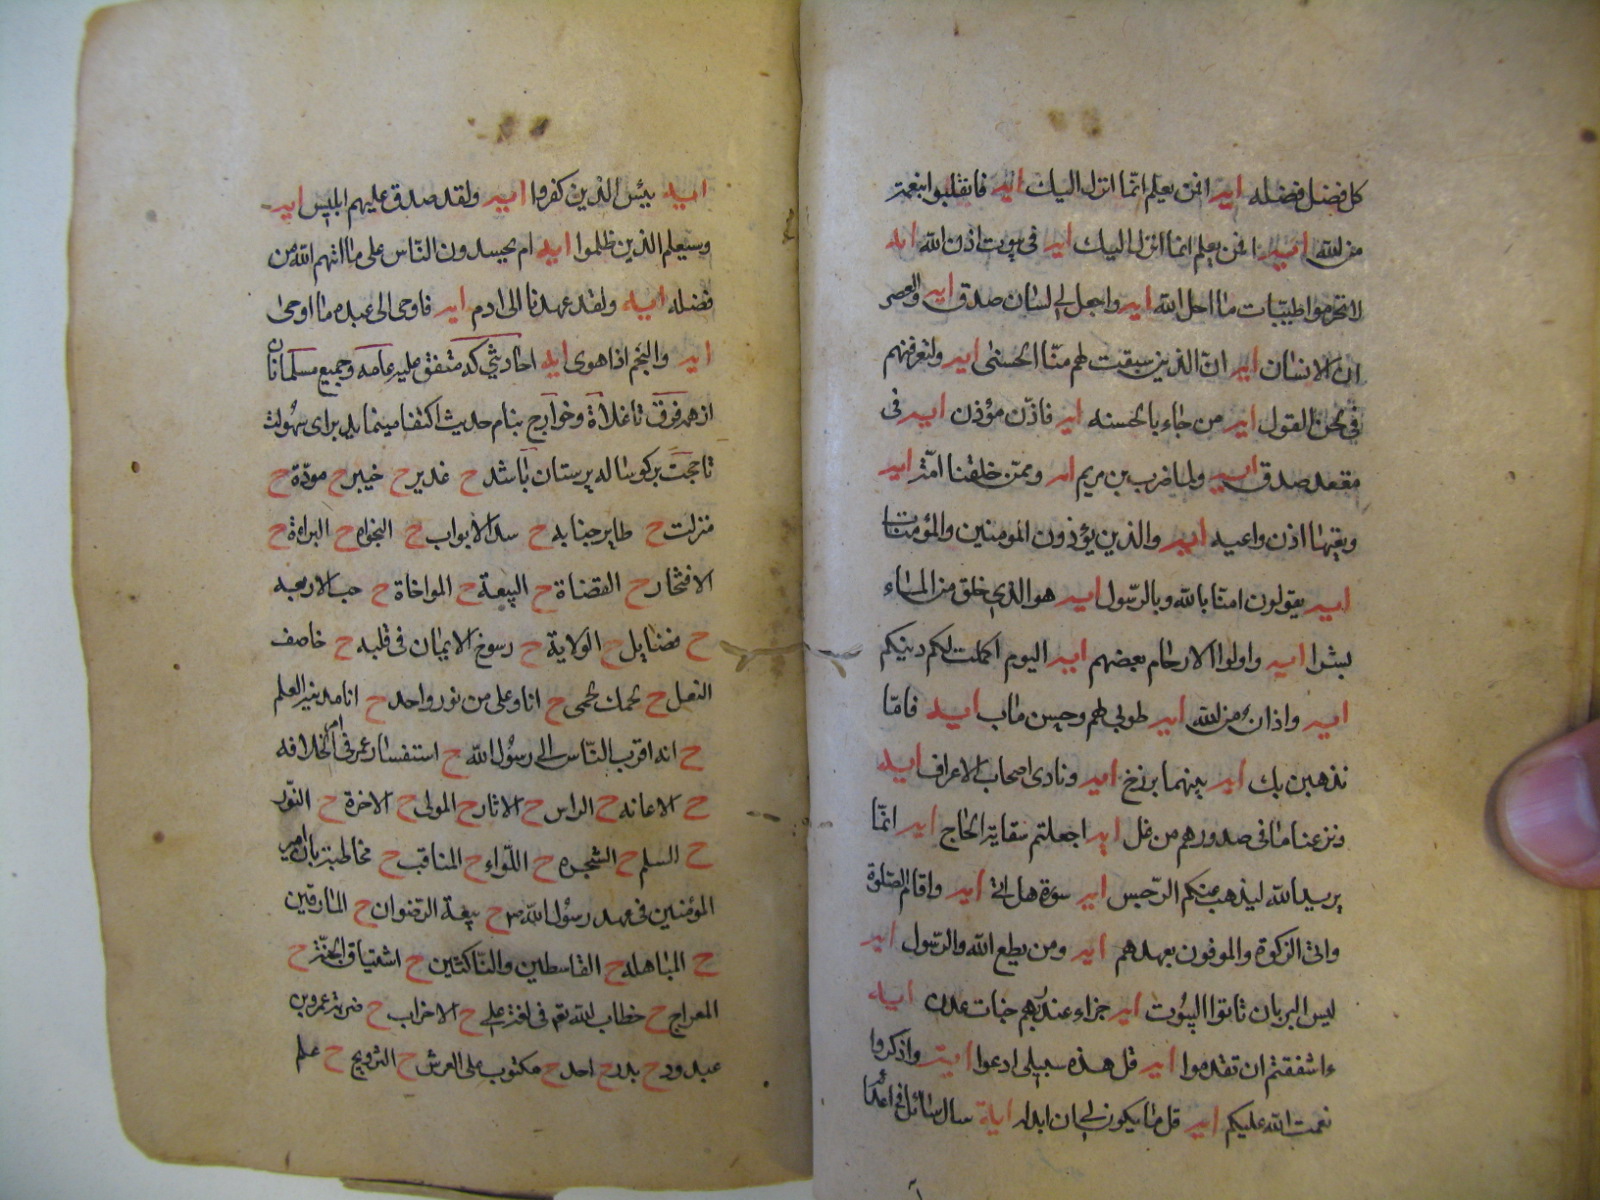 كل فضل فضله ايه افمن يعلم انما انزل اليك ايه فانقلبوا بنعمة
من الله ايه افمن يعلم انما انزل اليك ايه فى بيوت اذن الله ايه
لا تحرموا طيبات ما احل الله ايه واجعل لى لسان صدق ايه والعصر
ان الانسان ايه ان الذين سبقت لهم منا الحسنى ايه ولتعرفنهم
فى لحن القول ايه من جاء بالحسنه ايه فاذن مؤذن ايه فى
مقعد صدق ايه ولما ضرب بن مريم ايه وممن خلقنا امة ايه
وتعيها اذن واعيه ايه والذين يؤذون المومنين والمؤمنات
ايه يقولون امنا بالله وبالرسول ايه هو الذى خلق من الماء
بشرا ايه واولوا الارحام بعضهم ايه اليوم اكملت لكم دينكم
ايه واذان من الله ايه طوبى لهم وحسن ماب ايه فاما
نذهبن بك ايه بينهما برزخ ايه ونادى اصحاب الاعراف ايه
ونزعنا ما فى صدورهم من غل ايه اجعلتم سقاية الحاج ايه انما
يريد الله ليذهب عنكم الرجس ايه سورة هل اتى ايه واقام الصلوة
واتى الزكوة والموفون بعهدهم ايه ومن يطع الله والرسول ايه
ليس البر بان تاتوا البيوت ايه جزاء عند ربهم جنات عدن ايه
ءاشفقتم ان تقدموا ايه قل هذه سبيلى ادعوا ايه واذكروا
نعمت الله عليكم ايه قل ما يكون لى ان ابدله اية سال سائل
ايه بيئس الذين كفروا ايه ولقد صدق عليهم ابليس ايه
وسيعلم الذين ظلموا ايه ام يحسدون الناس على ما اتهم الله من
فضله ايه ولقد عهدنا الى ادم ايه فاوحى الى عبده ما اوحى
ايه والنجم اذا هوى ايه احاديثى كه متفق عليه عامه وجميع مسلمانان
از همه فرق تا غلاة وخوارج بنام حديث اكتفا مينمايد براى سهولت
تا حجت بر كوساله پرستان باشد ح غدير ح خيبر ح مودة ح
منزلت ح طاير جنابه ح سد الابواب ح النجواه ح البراءة ح
الافتخار ح القضاة ح البيعة ح المواخاة ح حب الاربعه
ح فضايل ح الولاية ح رسوخ الايمان فى قلبه ح خاصف
النعل ح لحمك لحمى ح انا وعلى من نور واحد ح انا مدينة العلم
ح انه اقرب الناس الى رسول الله ح استفسار عمر فى امر الخلافه
ح الاعانه ح الراس ح الاثار ح المولى ح الاخرة ح النور
ح السلم ح الشجره ح اللواء ح المناقب ح مخاطبة بامير
المؤمنين فى عهد رسول الله ص ح بيعة الرضوان ح المارقين
ح المباهله ح القاسطين والناكثين ح اشتياق الجنة ح
المعراج ح خطاب الله تع فى لغة على ح الاحزاب ح ضربة عمرو بن
عبدود ح بدر ح احد ح مكتوب على العرش ح الترويج ح علم